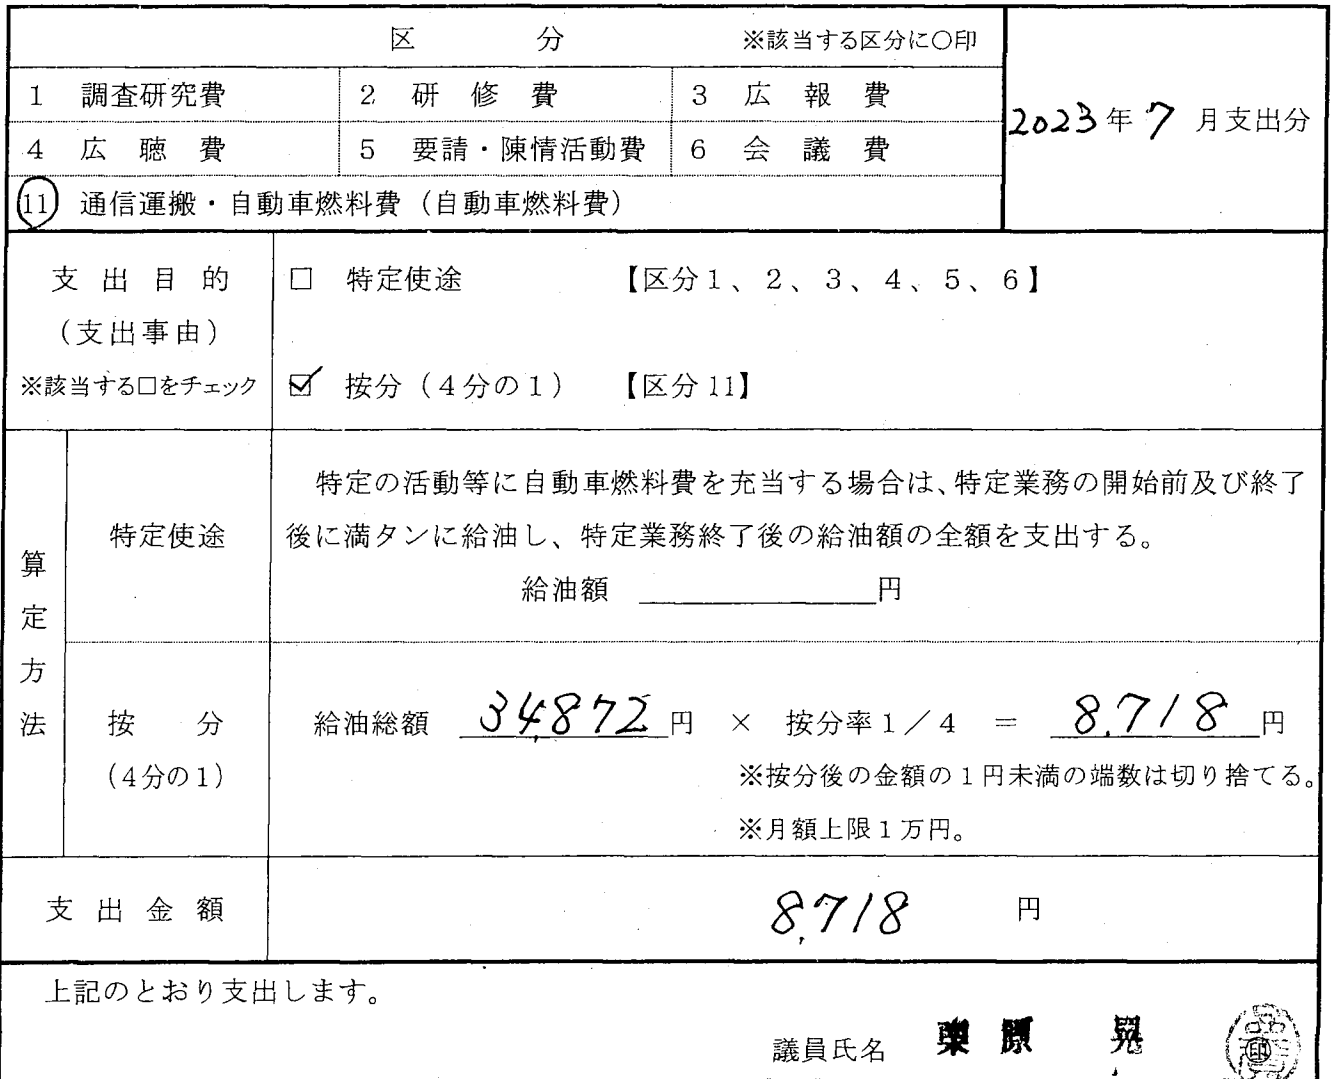 区 分 ※該当する区分に○印
1 調査研究費 2 研修費 3 広報費
2023年7月支出分
4 広聴費 5 要請・陳情活動費 6 会議費
11 通信運搬・自動車燃料費(自動車燃料費)
支出目的 □ 特定使途 【区分1、2、3、4、5、6】
(支出事由)
※該当する□をチェック ☑ 按分(4分の1) 【区分11】
算定方法
特定使途
特定の活動等に自動車燃料費を充当する場合は、特定業務の開始前及び終了
後に満タンに給油し、特定業務終了後の給油額の全額を支出する。
給油額 円
按分
(4分の1)
給油総額 34,872円 × 按分率1/4 = 8,718円
※按分後の金額の1円未満の端数は切り捨てる。
※月額上限1万円。
支出金額 8,718 円
上記のとおり支出します。
議員氏名 原 晃 ㊞